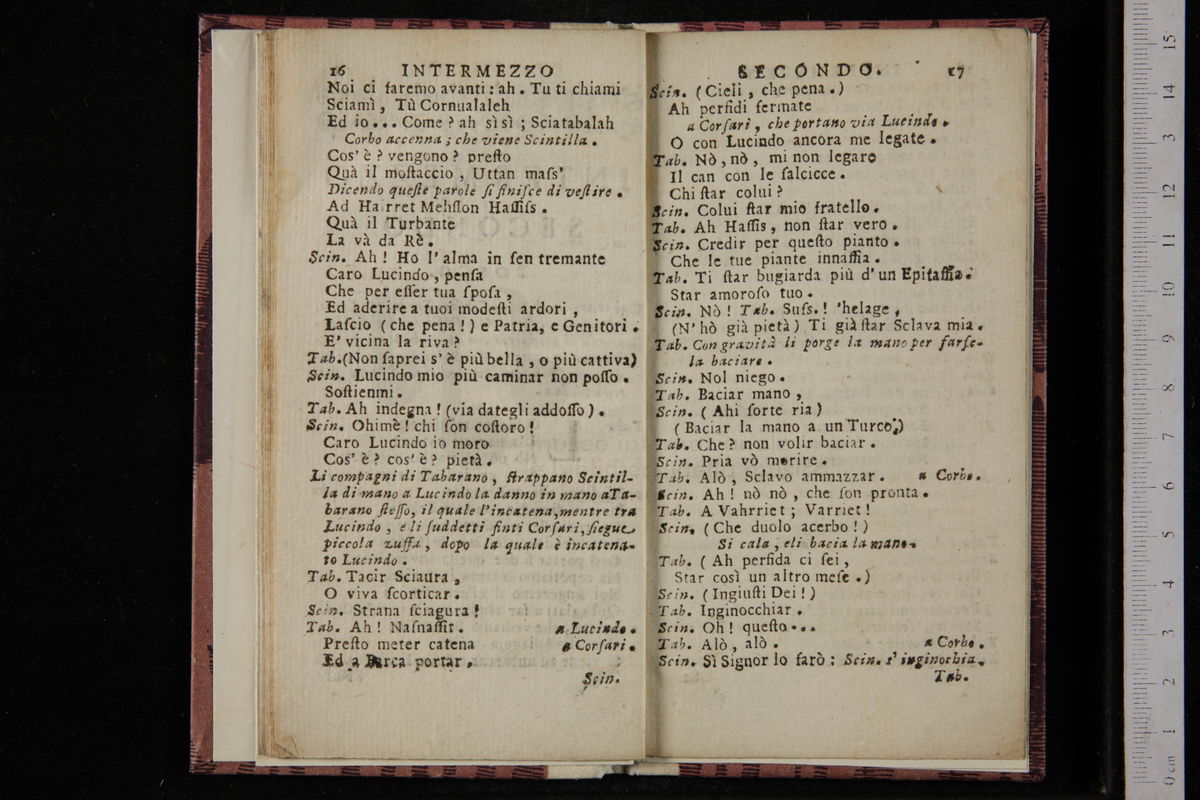 16 INTERMEZZO
Noi ci faremo avanti : ah . Tu ti chiami
Sciamì , Tù Cornualaleh
Ed io ... Come ? ah sì sì ; Sciatabalah
Corbo accenna ; che viene Scintilla .
Cos' è ? vengono ? presto
Quà il mostaccio , Uttan mass'
Dicendo queste parole si finisce di vestire .
Ad Hairret Mehsson Hassiss .
Quà il Turbante
La và da Rè .
Scin. Ah ! Ho l' alma in sen tremante
Caro Lucindo , pensa
Che per esser tua sposa ,
Ed aderire a tuoi modesti ardori ,
Lascio ( che pena ! ) e Patria, e Genitori .
E' vicina la riva ?
Tab. (Non saprei s' è più bella , o più cattiva)
Scin. Lucindo mio più caminar non posso .
Sostienmi .
Tab. Ah indegna ! (via dategli addosso ) .
Scin. Ohimè ! chi son costoro !
Caro Lucindo io moro
Cos' è ? cos' è ? pietà .
Li compagni di Tabarano , strappano Scintil-
la di mano a Lucindo la danno in mano a Ta-
barano stesso, il quale l'incatena, mentre tra
Lucindo , e li suddetti finti Corsari, siegue
piccola zuffa , dopo la quale è incatena-
to Lucindo .
Tab. Tacir Sciaura ,
O viva scorticar .
Scin. Strana sciagura !
Tab. Ah ! Nasnassit . a Lucindo .
Presto meter catena a Corsari .
Ed a Barca portar .
Scin.
SECONDO. 17
Scin. ( Cieli , che pena . )
Ah perfidi fermate
a Corsari , che portano via Lucindo .
O con Lucindo ancora me legate .
Tab. Nò , nò , mi non legare
Il can con le salcicce .
Chi star colui ?
Scin. Colui star mio fratello .
Tab. Ah Hassis , non star vero .
Scin. Credir per questo pianto .
Che le tue piante innassia .
Tab. Ti star bugiarda più d' un Epitassio .
Star amoroso tuo .
Scin. Nò ! Tab. Suss. ! 'helage ,
(N' hò già pietà ) Ti già star Sclava mia .
Tab. Con gravità li porge la mano per farse-
la baciare .
Scin. Nol niego .
Tab. Baciar mano ,
Scin. ( Ahi sorte ria )
( Baciar la mano a un Turco ! )
Tab. Che ? non volir baciar .
Scin. Pria vò morire .
Tab. Alò , Sclavo ammazzar . a Corbo .
Scin. Ah ! nò nò , che son pronta .
Tab. A Vahrriet ; Varriet !
Scin. ( Che duolo acerbo ! )
Si cala , e li bacia la mano .
Tab. ( Ah perfida ci sei ,
Star così un altro mese . )
Scin. ( Ingiusti Dei ! )
Tab. Inginocchiar .
Scin. Oh ! questo ...
Tab. Alò , alò . a Corbo .
Scin. Sì Signor lo farò : Scin. s' inginochia .
Tab.
0 cm 1 2 3 4 5 6 7 8 9 10 11 12 13 14 15